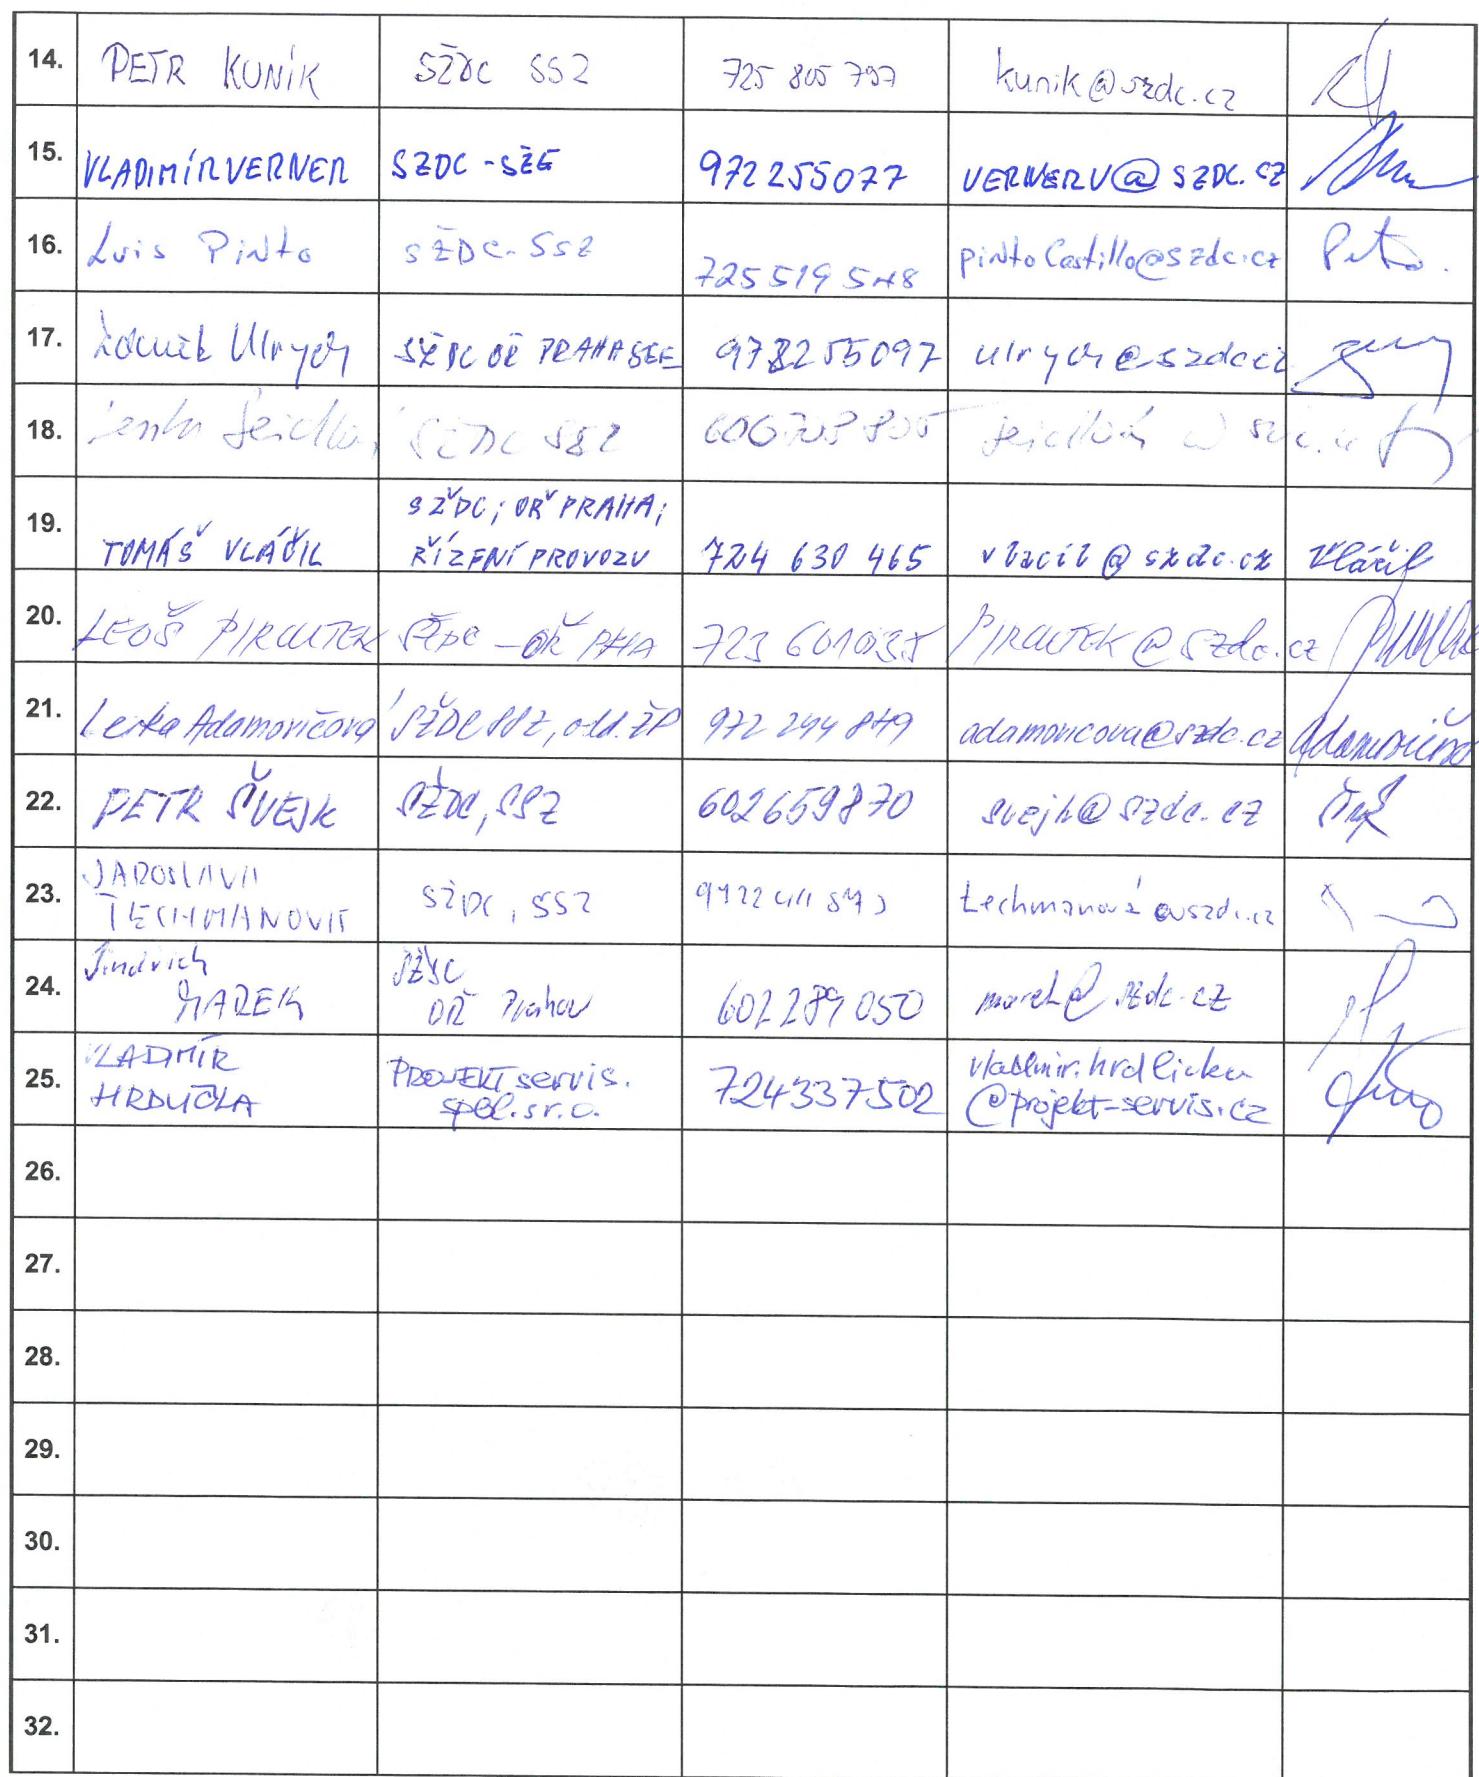 14. PETR KUNÍK SŽDC SSZ 725 805 797 kunik@szdc.cz
15. VLADIMÍR VERNER SZDC - SŽE 972255077 VERNERV@SZDC.CZ
16. Luis Pinto SŽDC-SSZ 725519548 pintoCastillo@szdc.cz
17. Zdeněk Ulrych SŽDC OŘ PRAHA SEE 978255097 ulrych@szdc.cz
18. SŽDC SSZ
19. TOMÁŠ VLÁČIL SŽDC; OŘ PRAHA; ŘÍZENÍ PROVOZU 724 630 465 vlacil@szdc.cz Vláčil
20. LEOŠ PIROUTEK SŽDC - OŘ PHA 723 601035 PIROUTEK@szdc.cz
21. Lenka Adamovičová SŽDC SSZ, odd. ŽP 972 244 849 adamovicova@szdc.cz Adamovičová
22. PETR ŠVEJK SŽDC, SSZ 602659870 svejk@szdc.cz
23. JAROSLAVA TECHMANOVÁ SŽDC, SSZ techmanová@szdc.cz
24. Jindřich MAREK SŽDC OŘ Praha 602289050 marek@szdc.cz
25. VLADIMÍR HRDLIČKA PROJEKT servis. spol. s r.o. 724337502 vladimir.hrdlicka
@projekt-servis.cz
26.
27.
28.
29.
30.
31.
32.